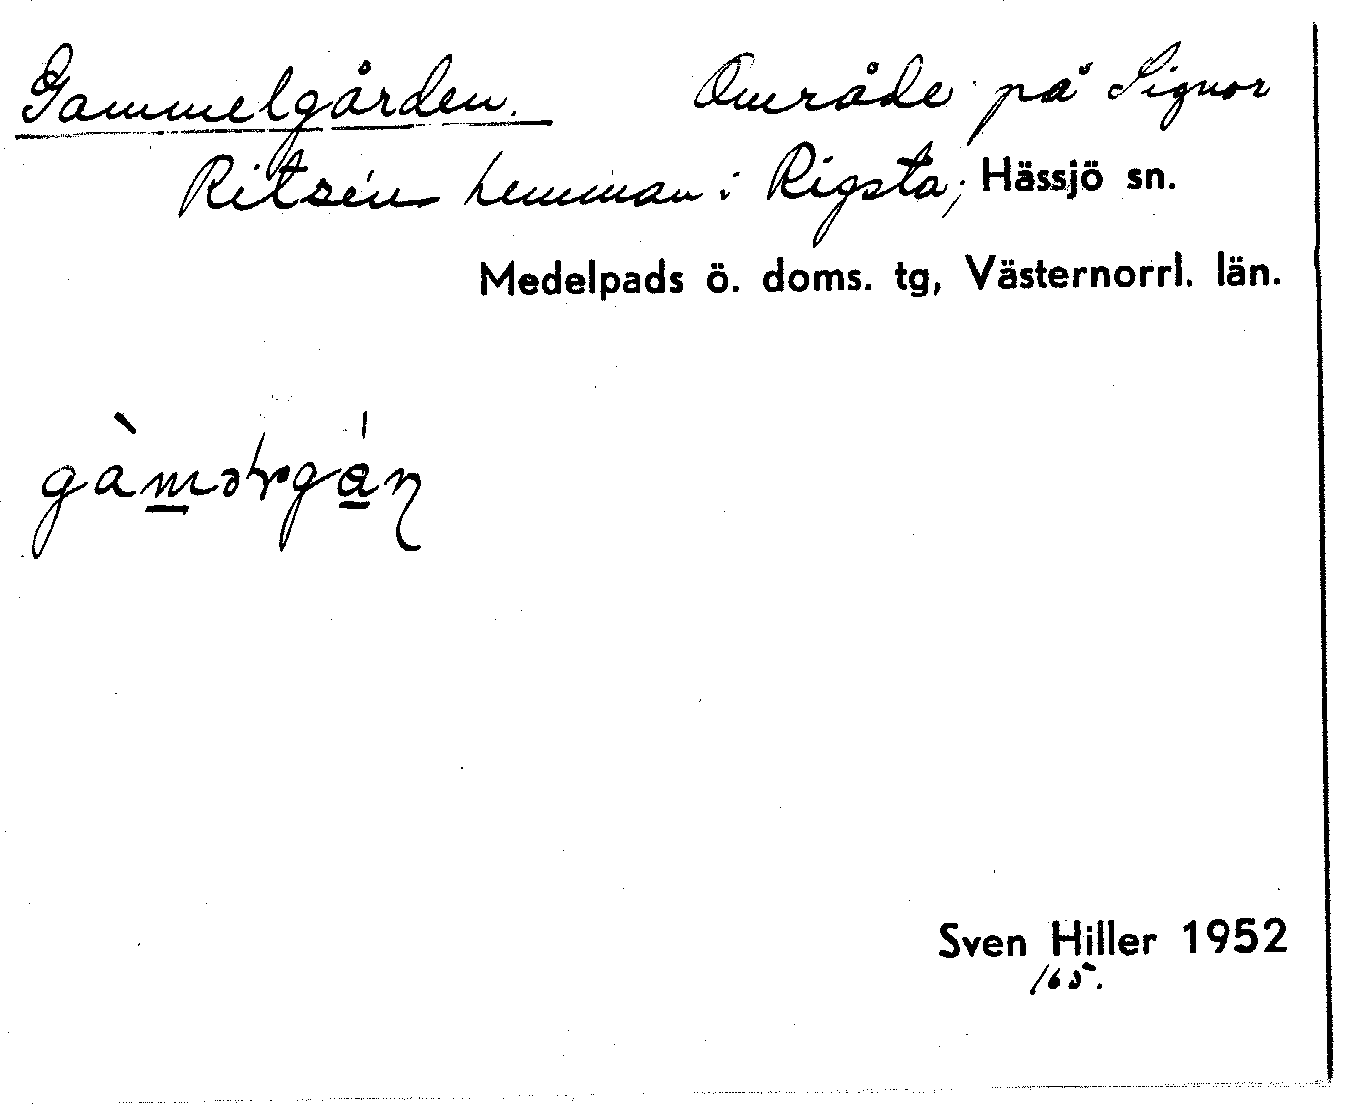 Gammelgården. Område på Signor
Ritzén hemman i Rigsta, Hässjö sn.
Medelpads ö. doms. tg, Västernorrl. län.
Sven Hiller 1952
165.